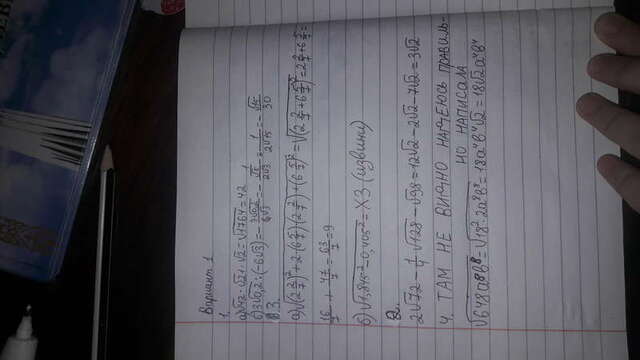 Вариант 1
1.
а)√42·√21·√2=√1764=42
б)3√0,2:(-6√3)=-3√0,2/6√3=-(1/√5)/2√3=1/2√15=-√15/30
3.
а)√(2 2/7)²+2·(6 5/7)·(2 2/7)+(6 5/7)²=√(2 2/7+6 5/7)²=2 2/7+6 5/7=
16/7+47/7=63/7=9
б)√1,845²-0,405²=ХЗ (извини)
2.
2√72-1/4√128-√98=12√2-2√2-7√2=3√2
4. ТАМ НЕ ВИДНО НАДЕЮСЬ ПРАВИЛЬ-
НО НАПИСАЛА
√648a⁸b⁸=√18²·2a⁸b⁸=18a⁴b⁴√2=18√2a⁴b⁴